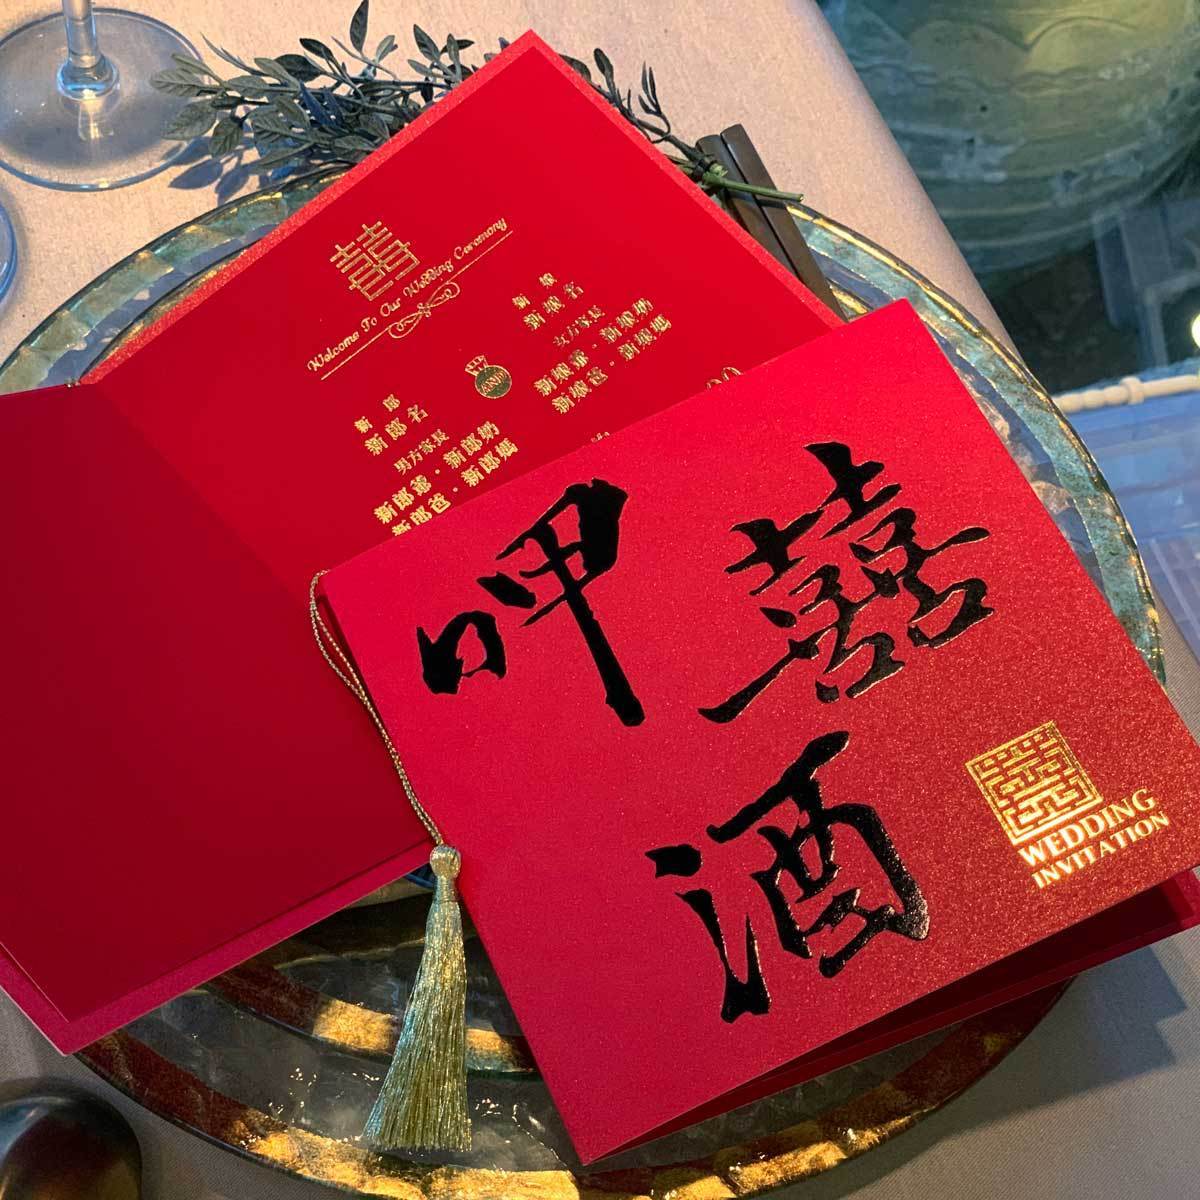 囍
Welcome To Our Wedding Ceremony
新郎
新郎名
男方家長
新郎爺・新郎奶
新郎爸・新郎媽
AND
新娘
新娘名
女方家長
新娘爺・新娘奶
新娘爸・新娘媽
呷
囍
酒
囍
WEDDING
INVITATION